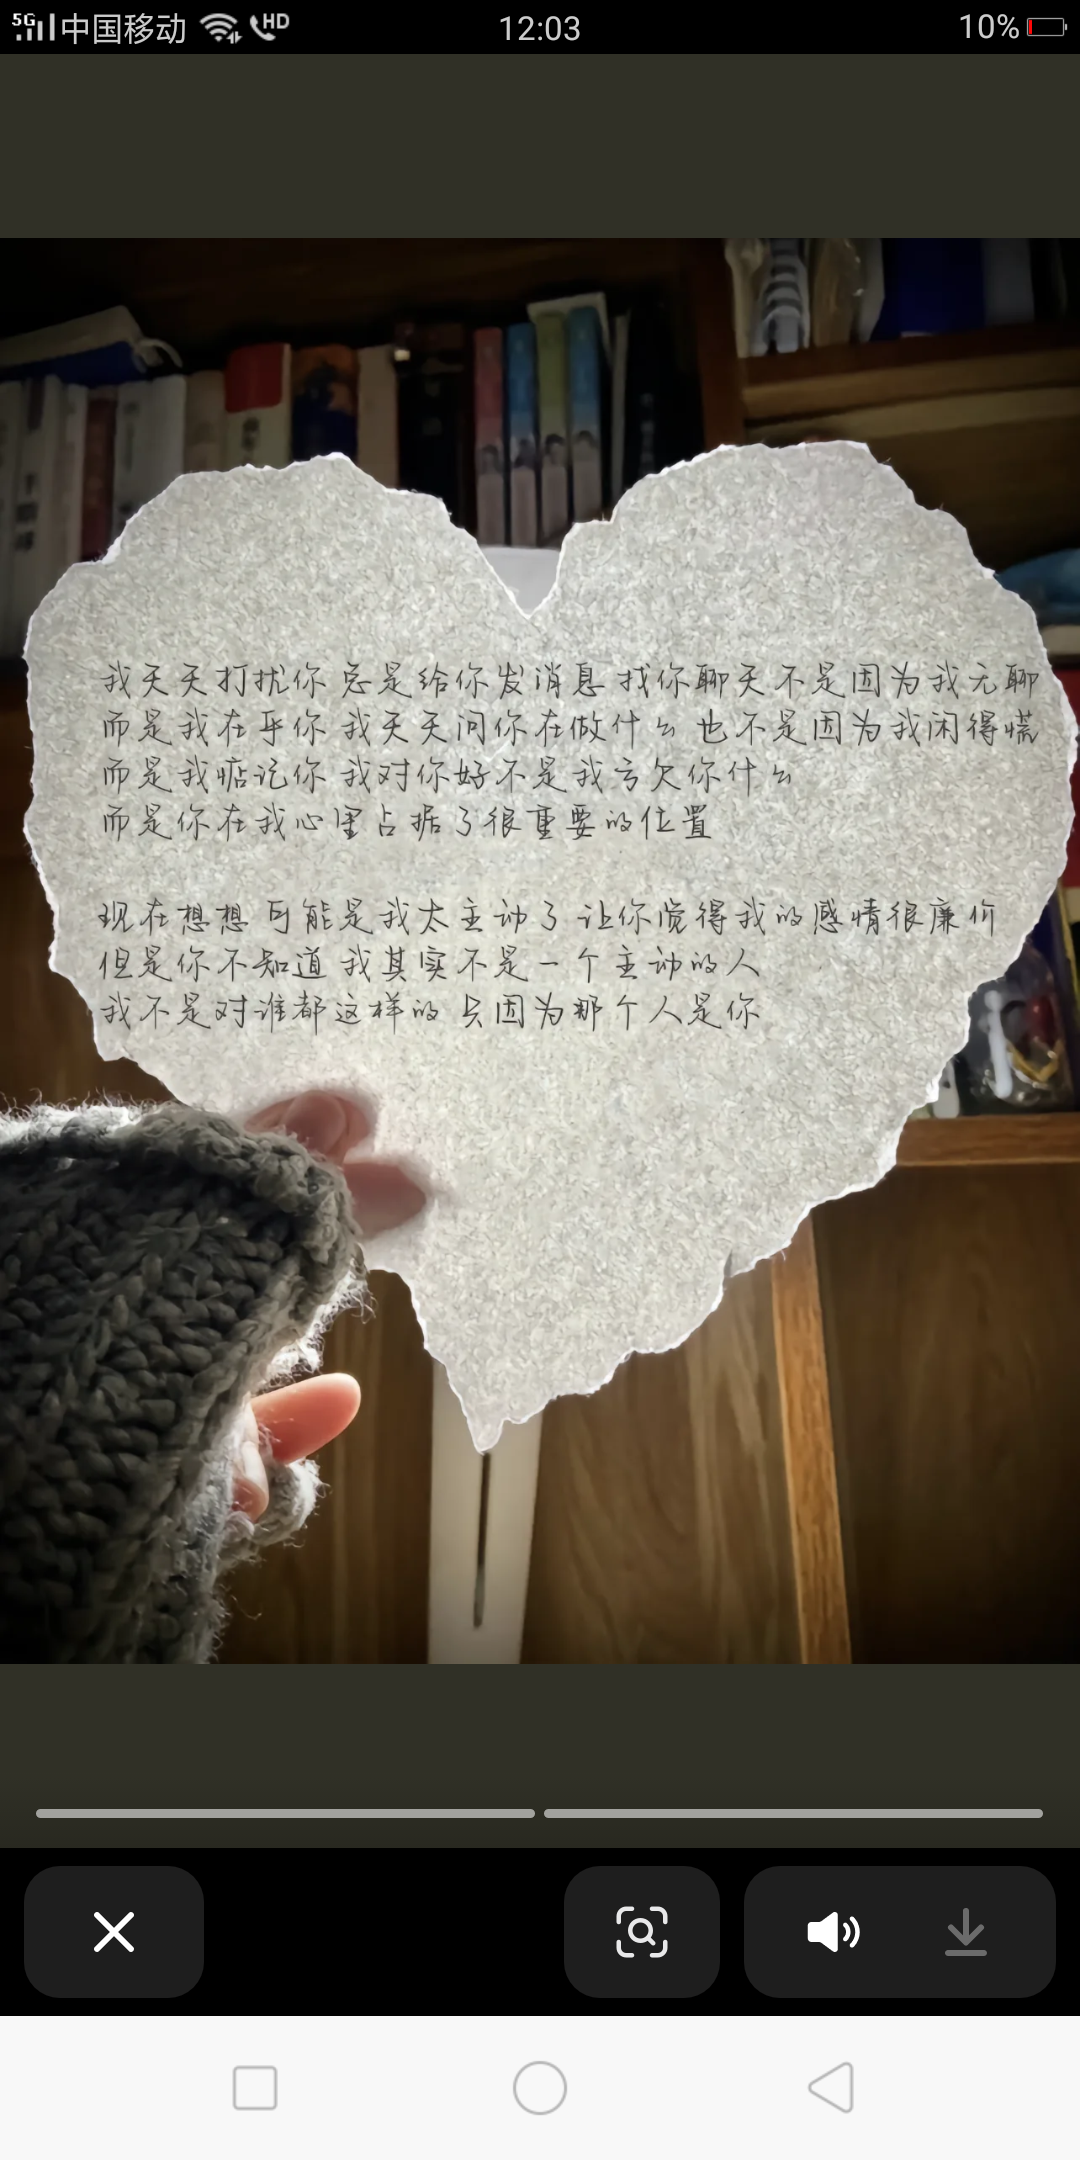 5G 中国移动 HD 12:03 10%
我天天打扰你 总是给你发消息 找你聊天 不是因为我无聊
而是我在乎你 我天天问你在做什么 也不是因为我闲得慌
而是我惦记你 我对你好不是我亏欠你什么
而是你在我心里占据了很重要的位置
现在想想 可能是我太主动了 让你觉得我的感情很廉价
但是你不知道 我其实不是一个主动的人
我不是对谁都这样的 只因为那个人是你